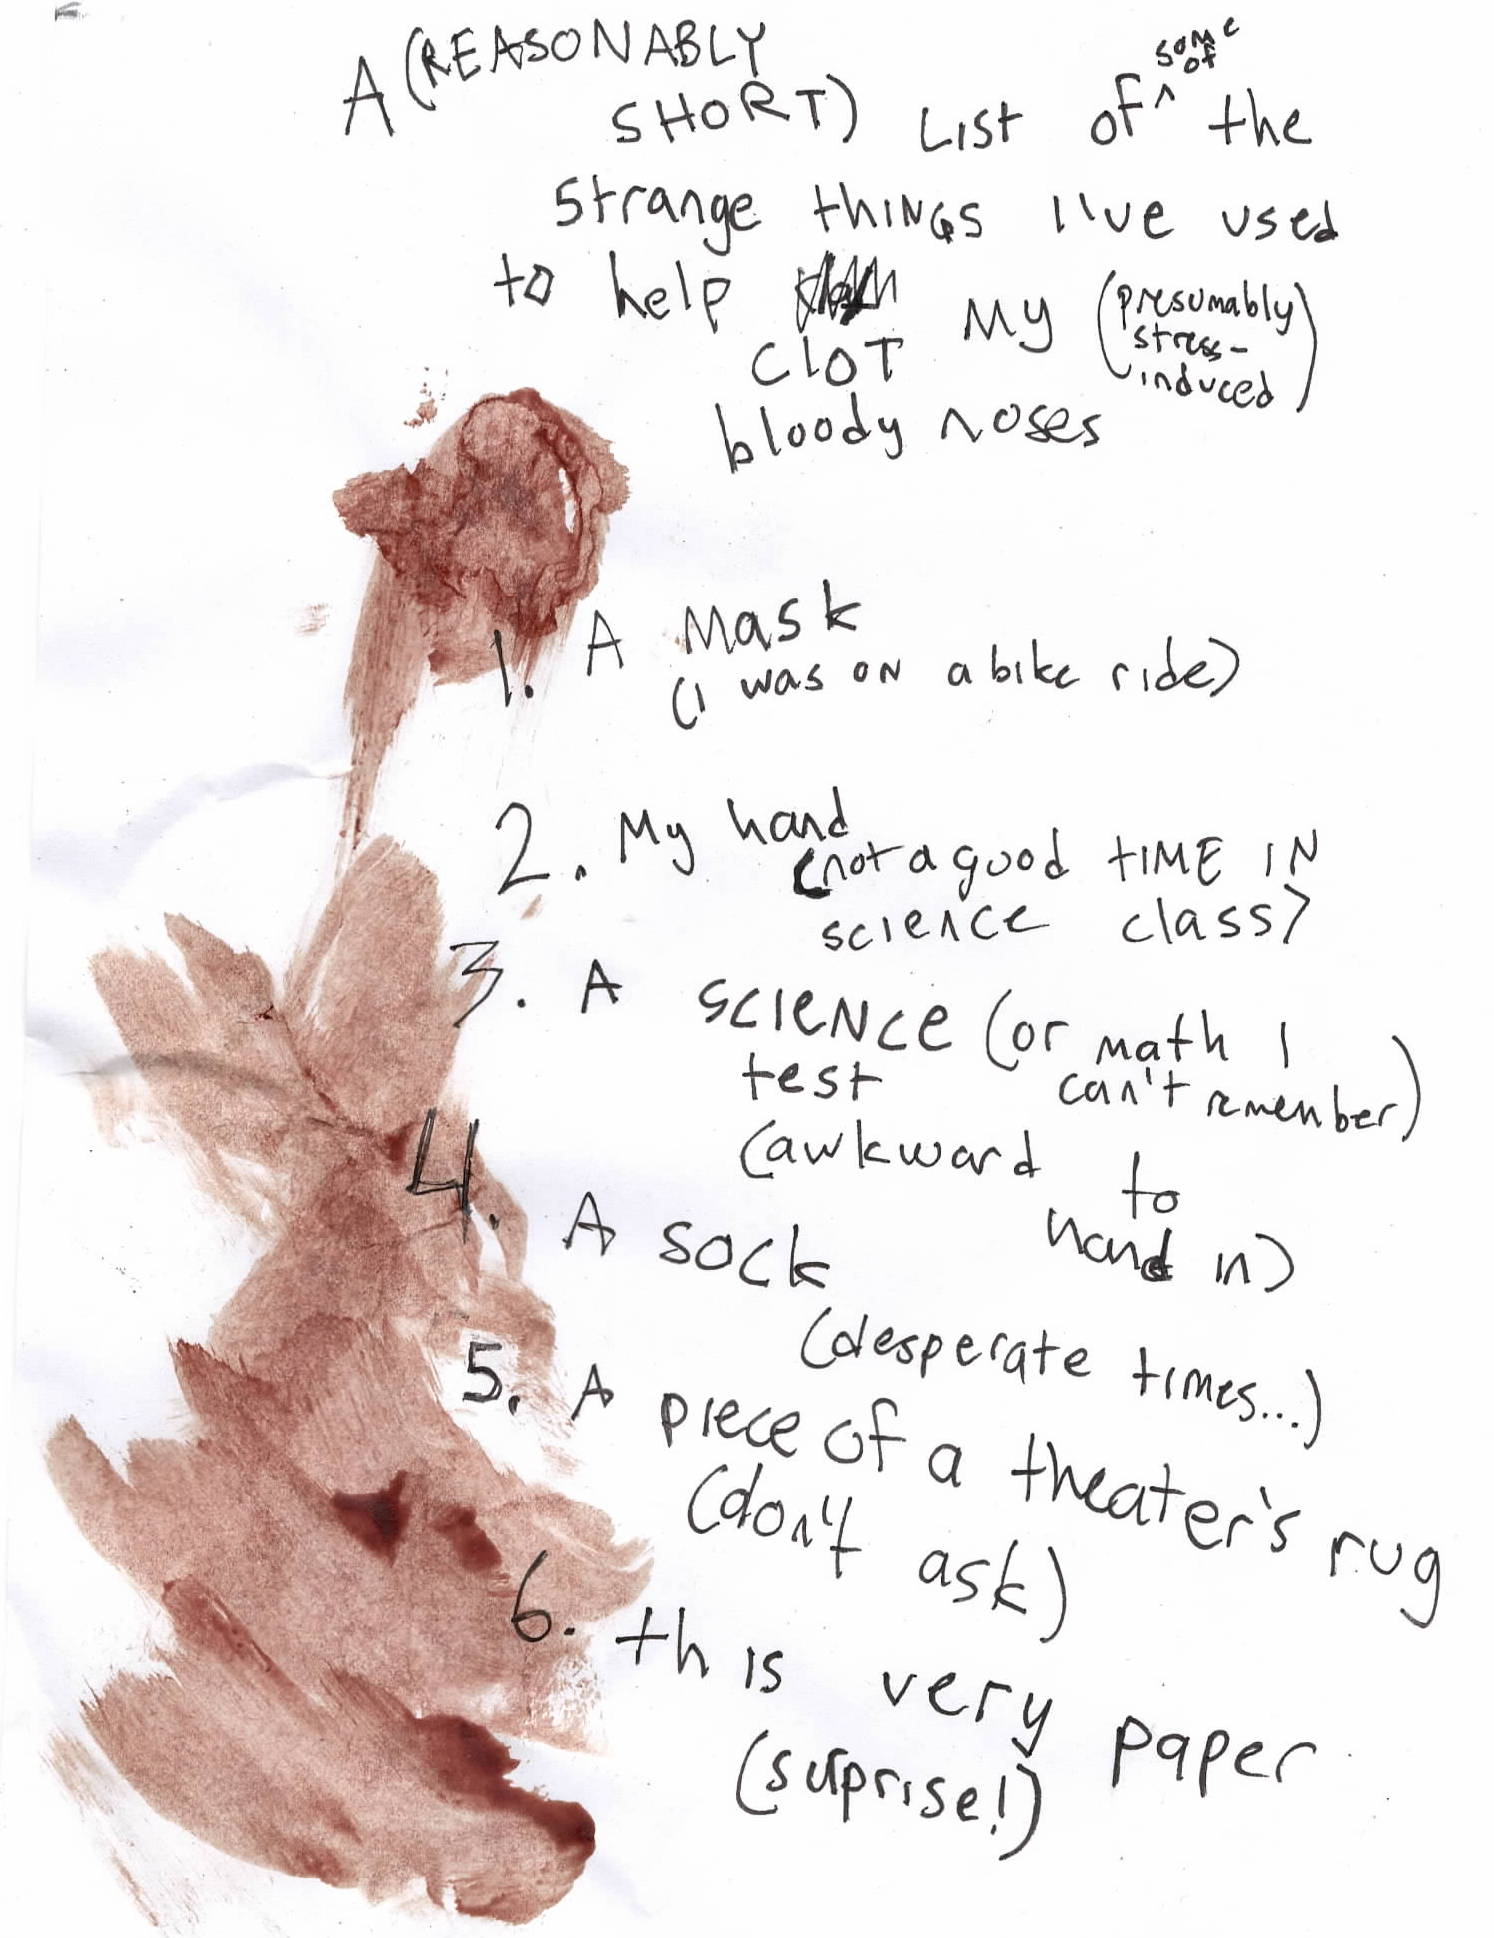 A (REASONABLY
SHORT) LIST OF ^ some of the
strange thINGS I've used
to help
CLOT MY (presumably stress-induced)
bloody noses
1. A Mask
(I was ON a bike ride)
2. My hand
(not a good tIME IN
science class)
3. A SCIENCE (or math I
test can't remember)
(awkward to
hand in)
4. A sock
(desperate times...)
5. A piece of a theater's rug
(don't ask)
6. this very paper
(surprise!)